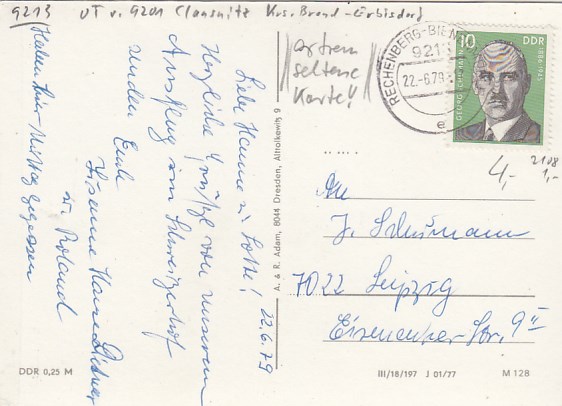 9213 OT v. 9201 Clausnitz Krs. Brand-Erbisdorf
extrem
seltene
Karte!
RECHENBERG-BIEN
921
22.-6.79.
e
10 DDR
1886-1925
4,-
2108
1,-
22.6.79
Liebe Hanne u. Lotte!
Herzliche Grüße von unserem
Ausflug im Schweizerhof
senden Euch
Hans Dieter
u. Roland
Haben hier Mittag gegessen
A. & R. Adam, 8044 Dresden, Altlolkewitz 9
An
J. Schumann
7022 Leipzig
Eisenacher-Str. 9 II
DDR 0,25 M
III/18/197 J 01/77
M 128